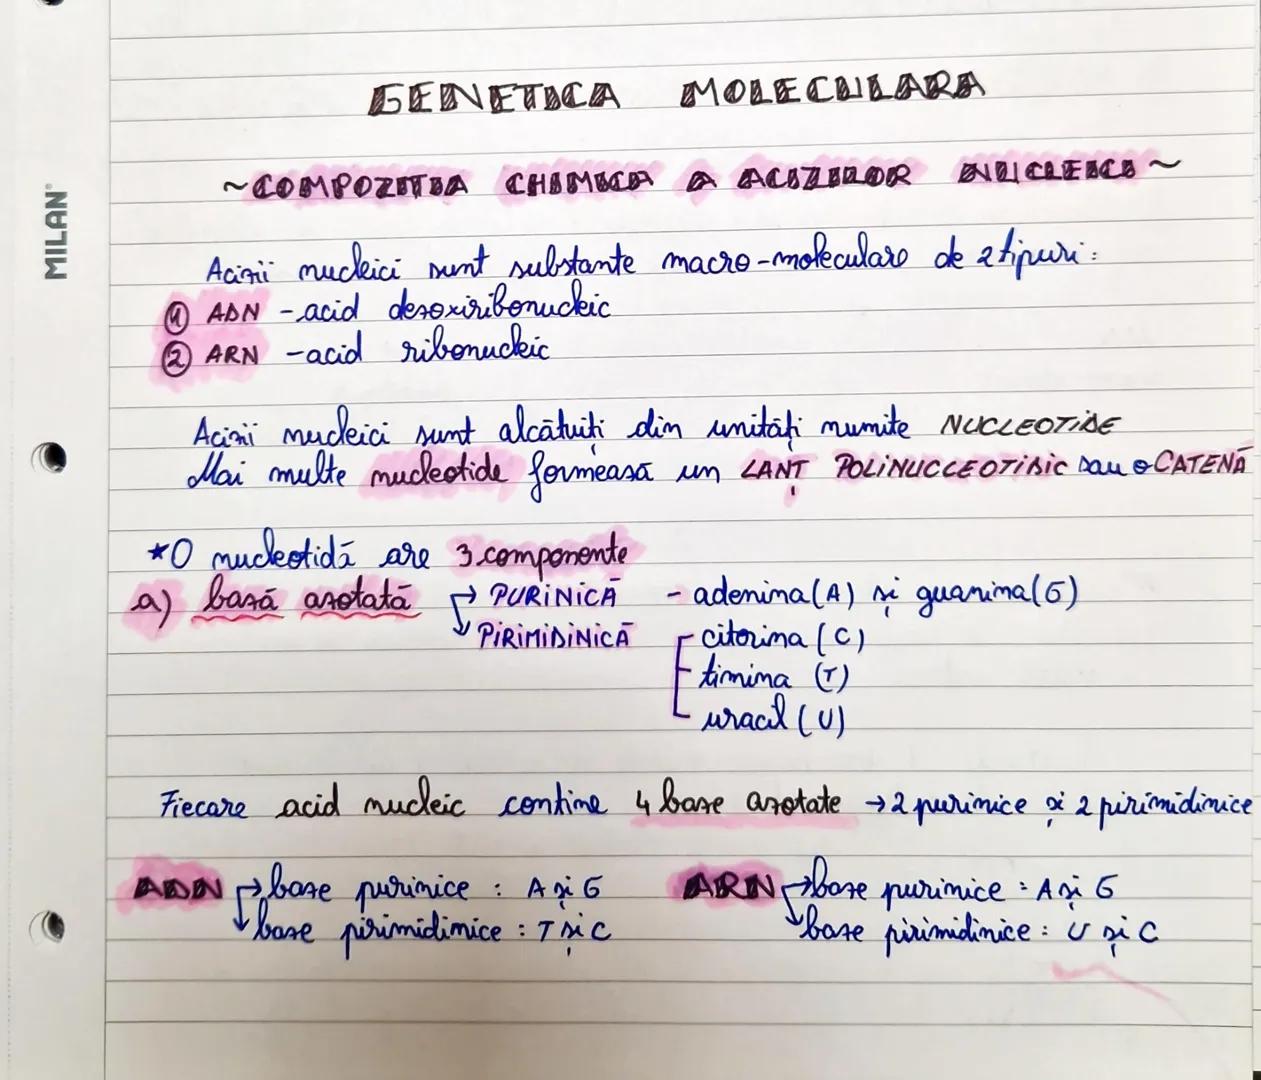 MILAN
GENETICA MOLECULARA
~COMPOZITIA CHIMICA A ACIZILOR NUCLEICI~
Acizii nucleici sunt substante macro-moleculare de 2 tipuri:
① ADN - acid dezoxiribonucleic
② ARN - acid ribonucleic
Acizii nucleici sunt alcătuiți din unități numite NUCLEOTIDE
Mai multe nucleotide formează un LANȚ POLINUCLEOTIDIC sau o CATENĂ
*O nucleotidă are 3 componente
a) bază azotată → PURINICĂ - adenina (A) și guanina (G)
↘ PIRIMIDINICĂ - citozina (C)
- timina (T)
- uracil (U)
Fiecare acid nucleic contine 4 baze azotate → 2 purinice și 2 pirimidinice
ADN → baze purinice : A și G ARN → baze purinice : A și G
↓ baze pirimidinice : T și C ↘ baze pirimidinice : U și C